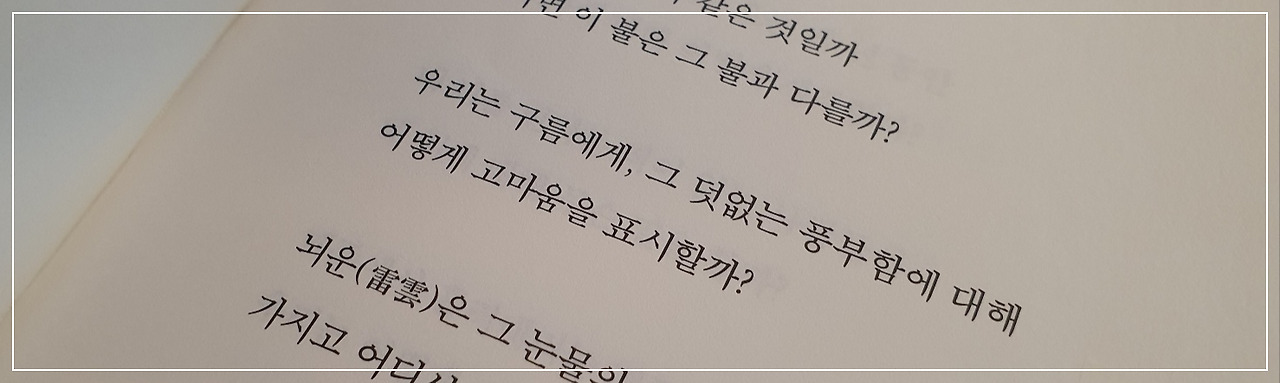 같은 것일까
이 불은 그 불과 다를까?
우리는 구름에게, 그 덧없는 풍부함에 대해
어떻게 고마움을 표시할까?
뇌운(雷雲)은 그 눈물의
가지고